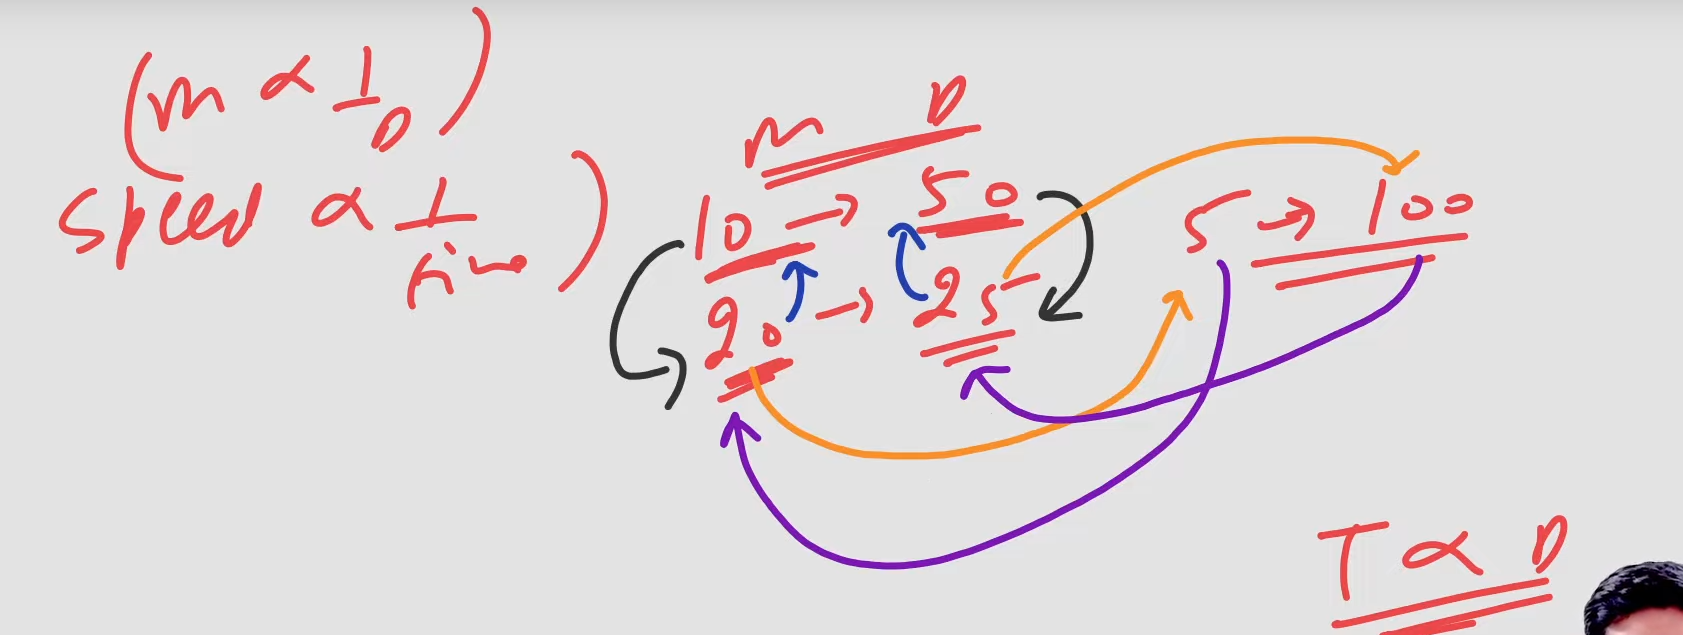 (m ∝ 1/D)
speed ∝ 1/time)
M D
10 → 50
20 → 25
5 → 100
T ∝ D